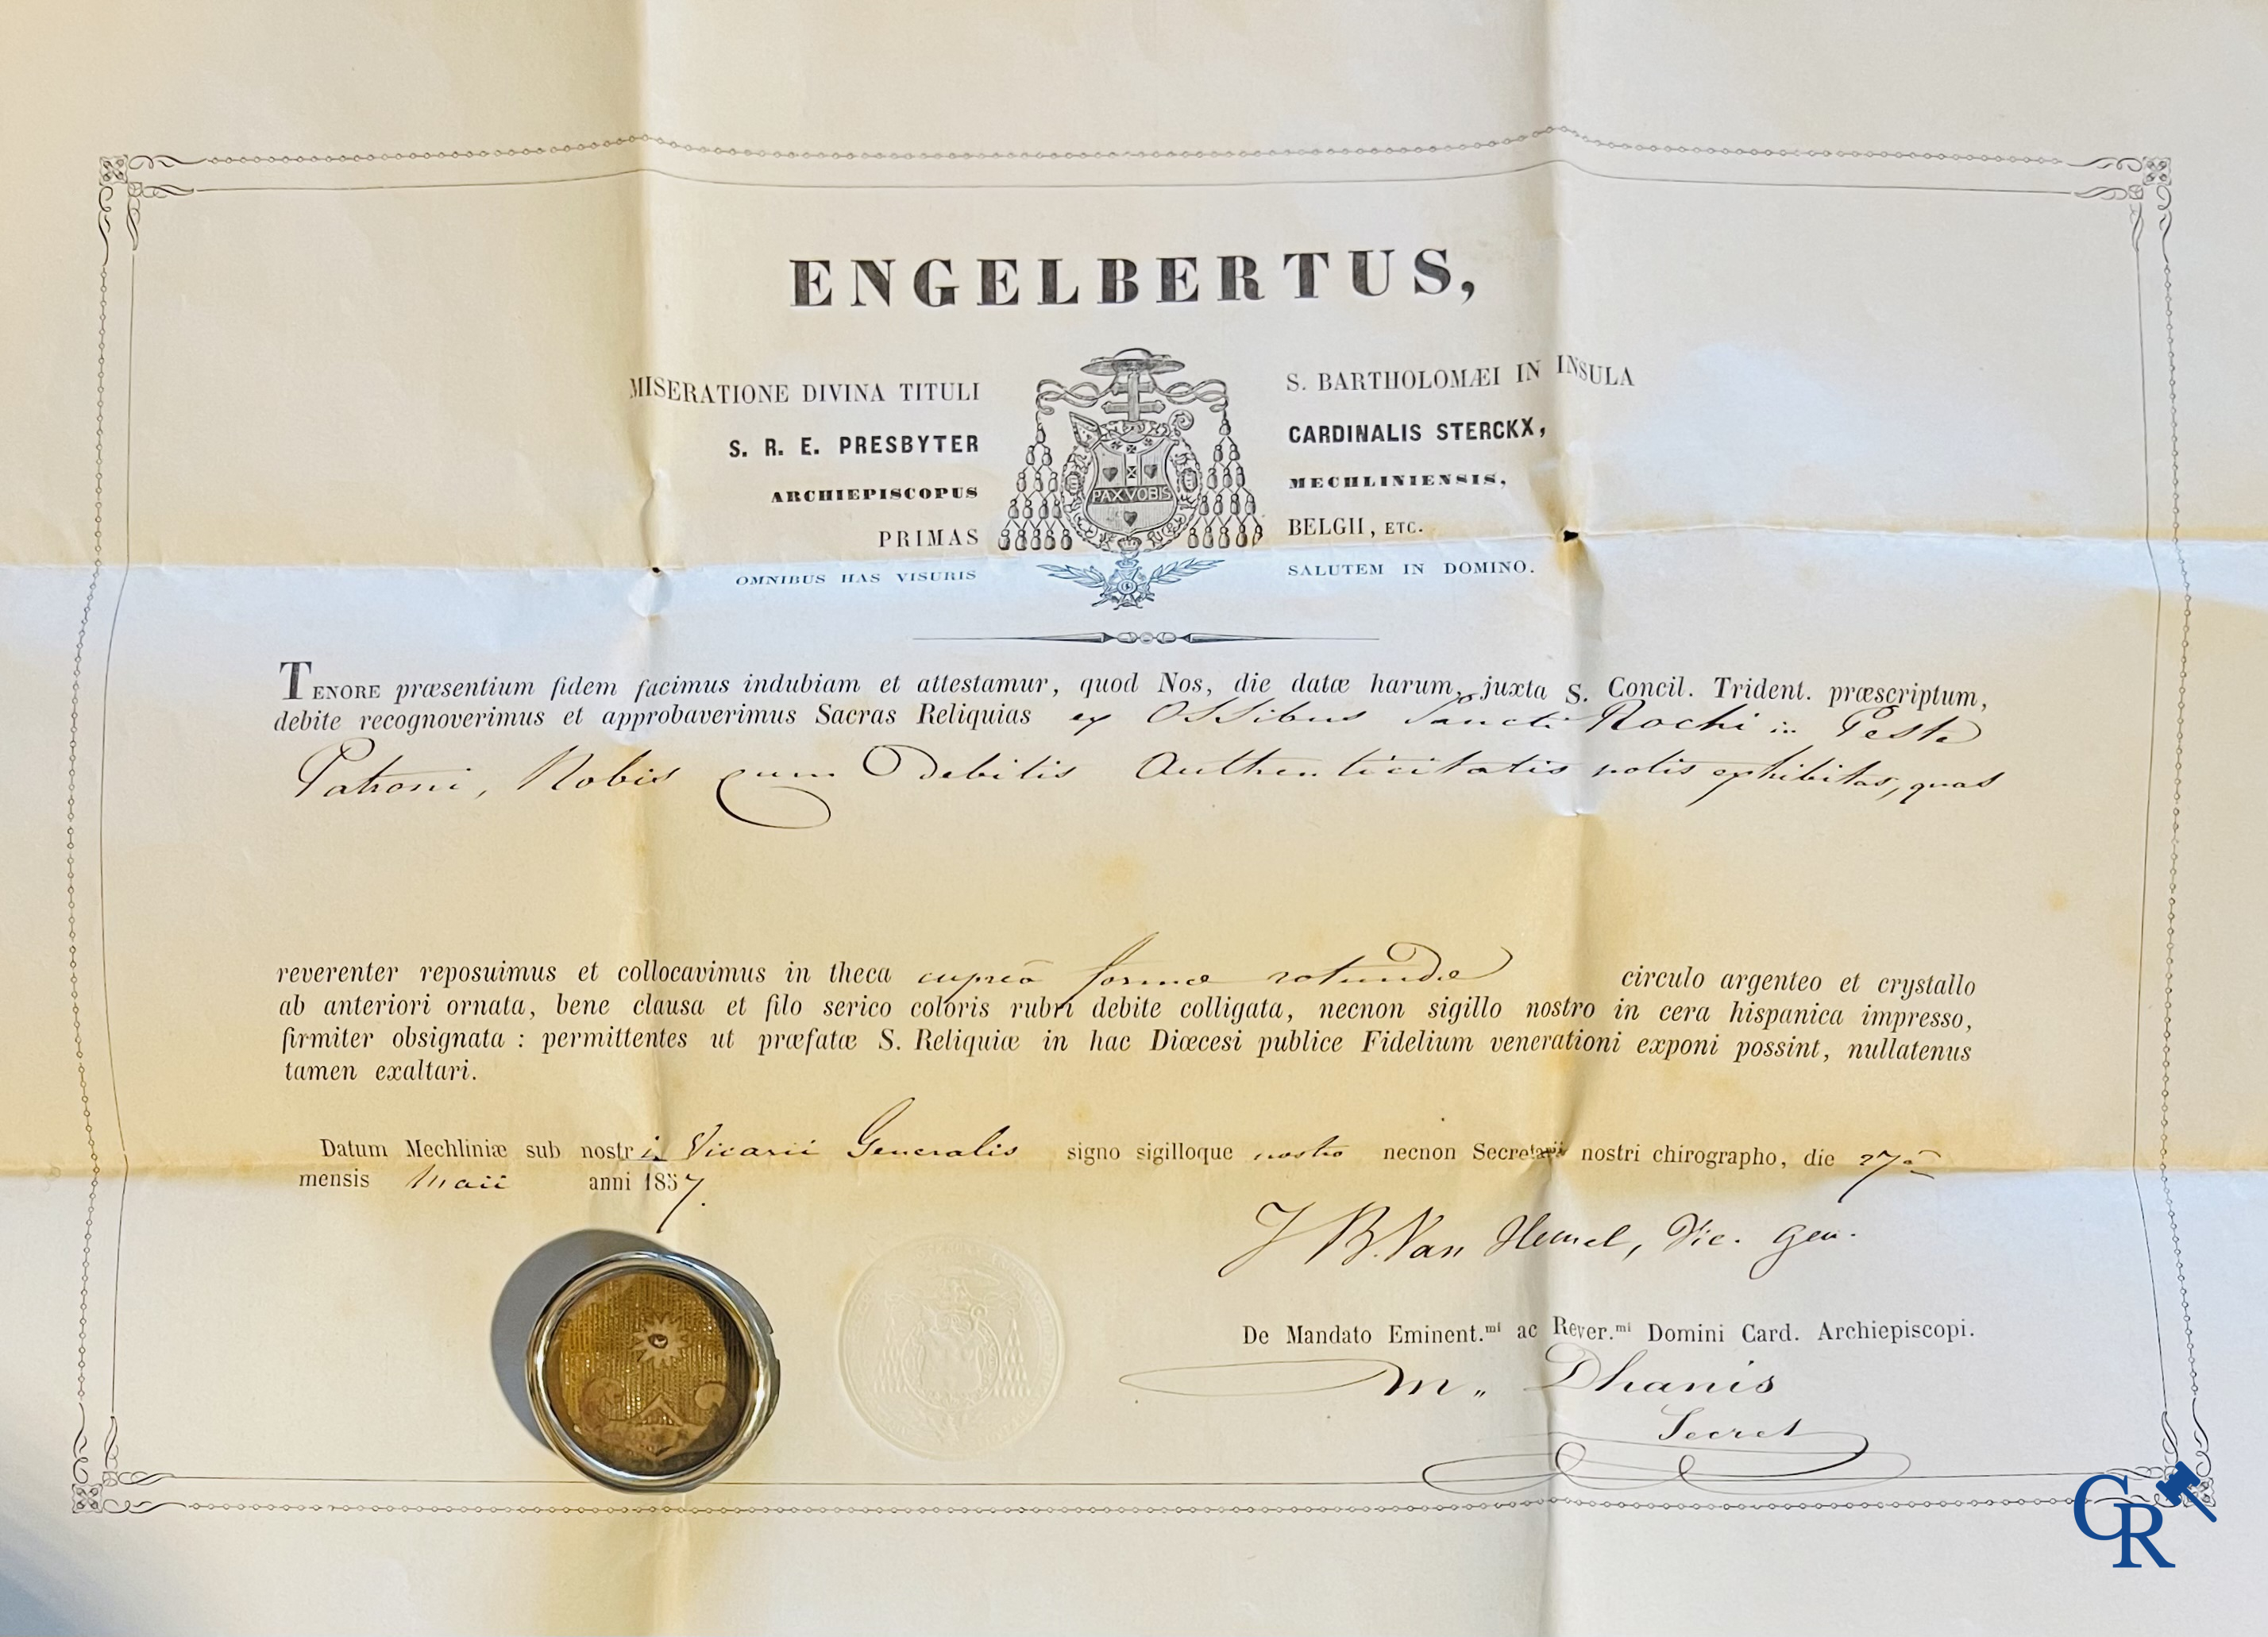 ENGELBERTUS,
MISERATIONE DIVINA TITULI S. BARTHOLOMÆI IN INSULA
S. R. E. PRESBYTER CARDINALIS STERCKX,
ARCHIEPISCOPUS MECHLINIENSIS,
PRIMAS BELGII, ETC.
PAX VOBIS
OMNIBUS HAS VISURIS SALUTEM IN DOMINO.
TENORE præsentium fidem facimus indubiam et attestamur, quod Nos, die datæ harum, juxta S. Concil. Trident. præscriptum,
debite recognoverimus et approbaverimus Sacras Reliquias ex Ossibus Sancti Rochi in Peste
Patroni, Nobis cum debitis Authenticitatis notis exhibitas, quas
reverenter reposuimus et collocavimus in theca cupreâ formæ rotundæ circulo argenteo et crystallo
ab anteriori ornata, bene clausa et filo serico coloris rubri debite colligata, necnon sigillo nostro in cera hispanica impresso,
firmiter obsignata : permittentes ut præfatæ S. Reliquiæ in hac Diœcesi publice Fidelium venerationi exponi possint, nullatenus
tamen exaltari.
Datum Mechliniæ sub nostri Vicarii Generalis signo sigilloque nostro necnon Secretarii nostri chirographo, die 27â
mensis Maii anni 1857.
J B. Van Hemel, Vic. gen.
De Mandato Eminent.mi ac Rever.mi Domini Card. Archiepiscopi.
M,, Dhanis
Secret
CR